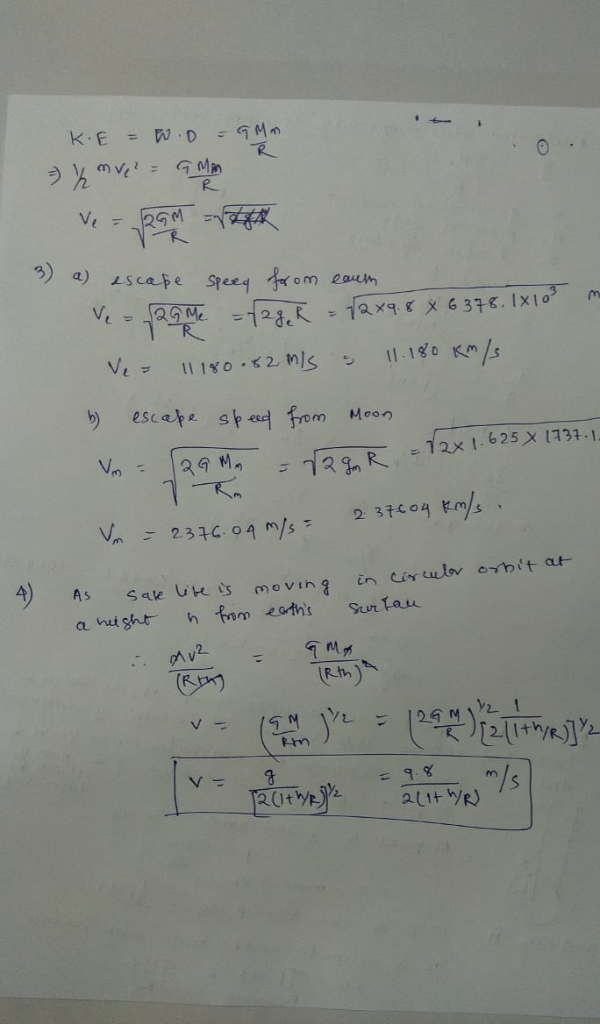 K.E = W.D = GMm/R
⇒ 1/2 mVe² = GMm/R
Ve = √(2GM/R) =
3) a) escape speed from earth
Ve = √(2GMe/R) = √(2geR) = √(2×9.8 × 6378.1×10³ m
Ve = 11180.82 m/s = 11.180 Km/s
b) escape speed from Moon
Vm = √(2GMm/Rm) = √(2gmR) = √(2×1.625×1737.1
Vm = 2376.04 m/s = 2.37604 Km/s.
4) As satelite is moving in circular orbit at
a height h from earth's surface
∴ mv²/(R+h) = GMm/(R+h)²
v = (GM/R+h)^1/2 = (2GM/R)^1/2 1/[2(1+h/R)]^1/2
v = g/[2(1+h/R)]^1/2 = 9.8/2(1+h/R) m/s